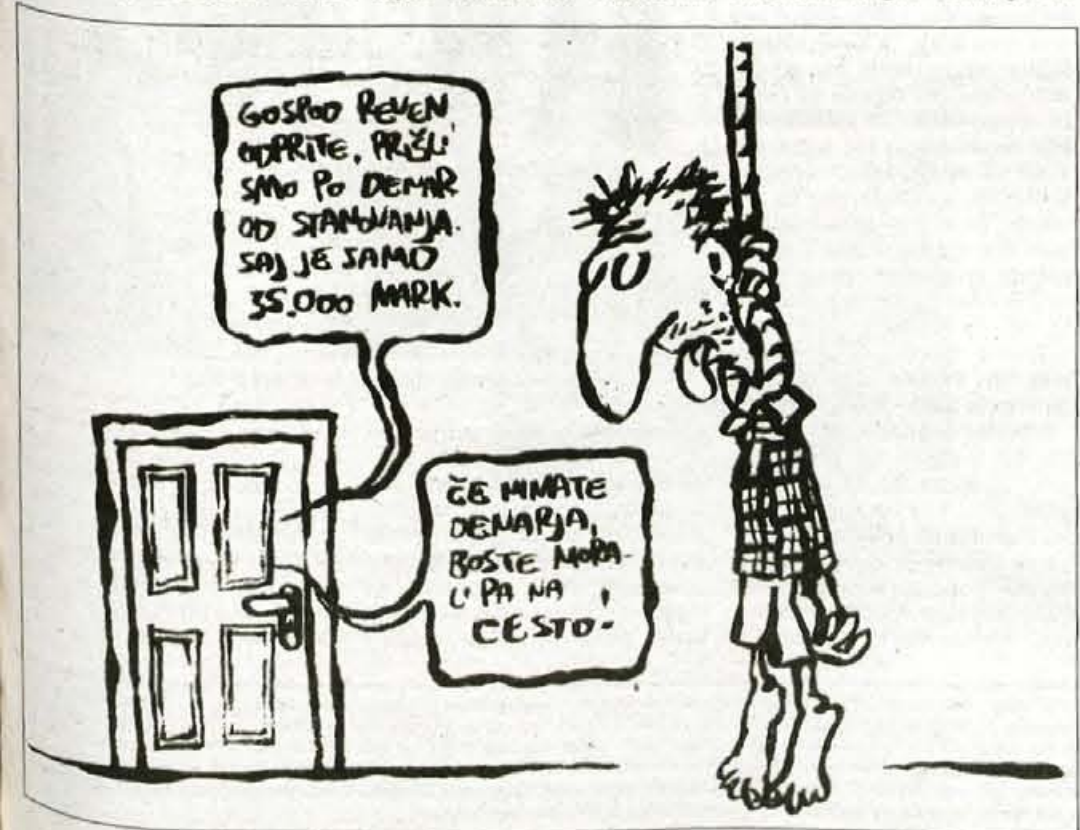 GOSPOD REVEN,
ODPRITE, PRIŠLI
SMO PO DENAR
OD STANOVANJA.
SAJ JE SAMO
35.000 MARK.
ČE NIMATE
DENARJA,
BOSTE MORA-
LI PA NA
CESTO.